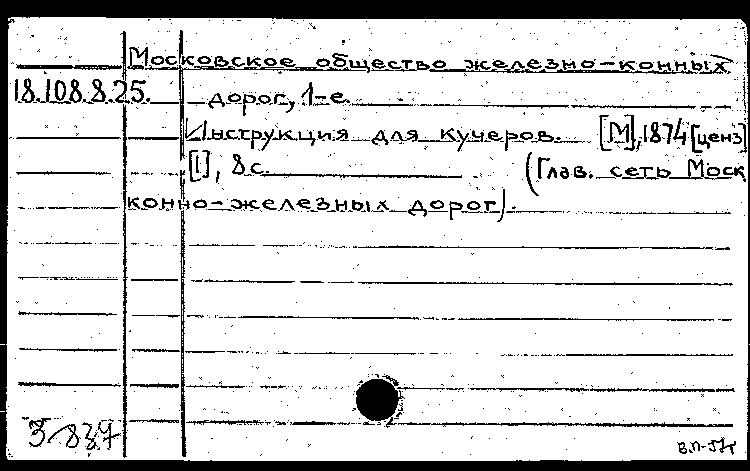 Московское общество железно-конных
18.108.8.25. дорог, 1-е.
Инструкция для кучеров. [М], 1874 [ценз]
[1], 8 с. (Глав. сеть Моск
конно-железных дорог).
3-837